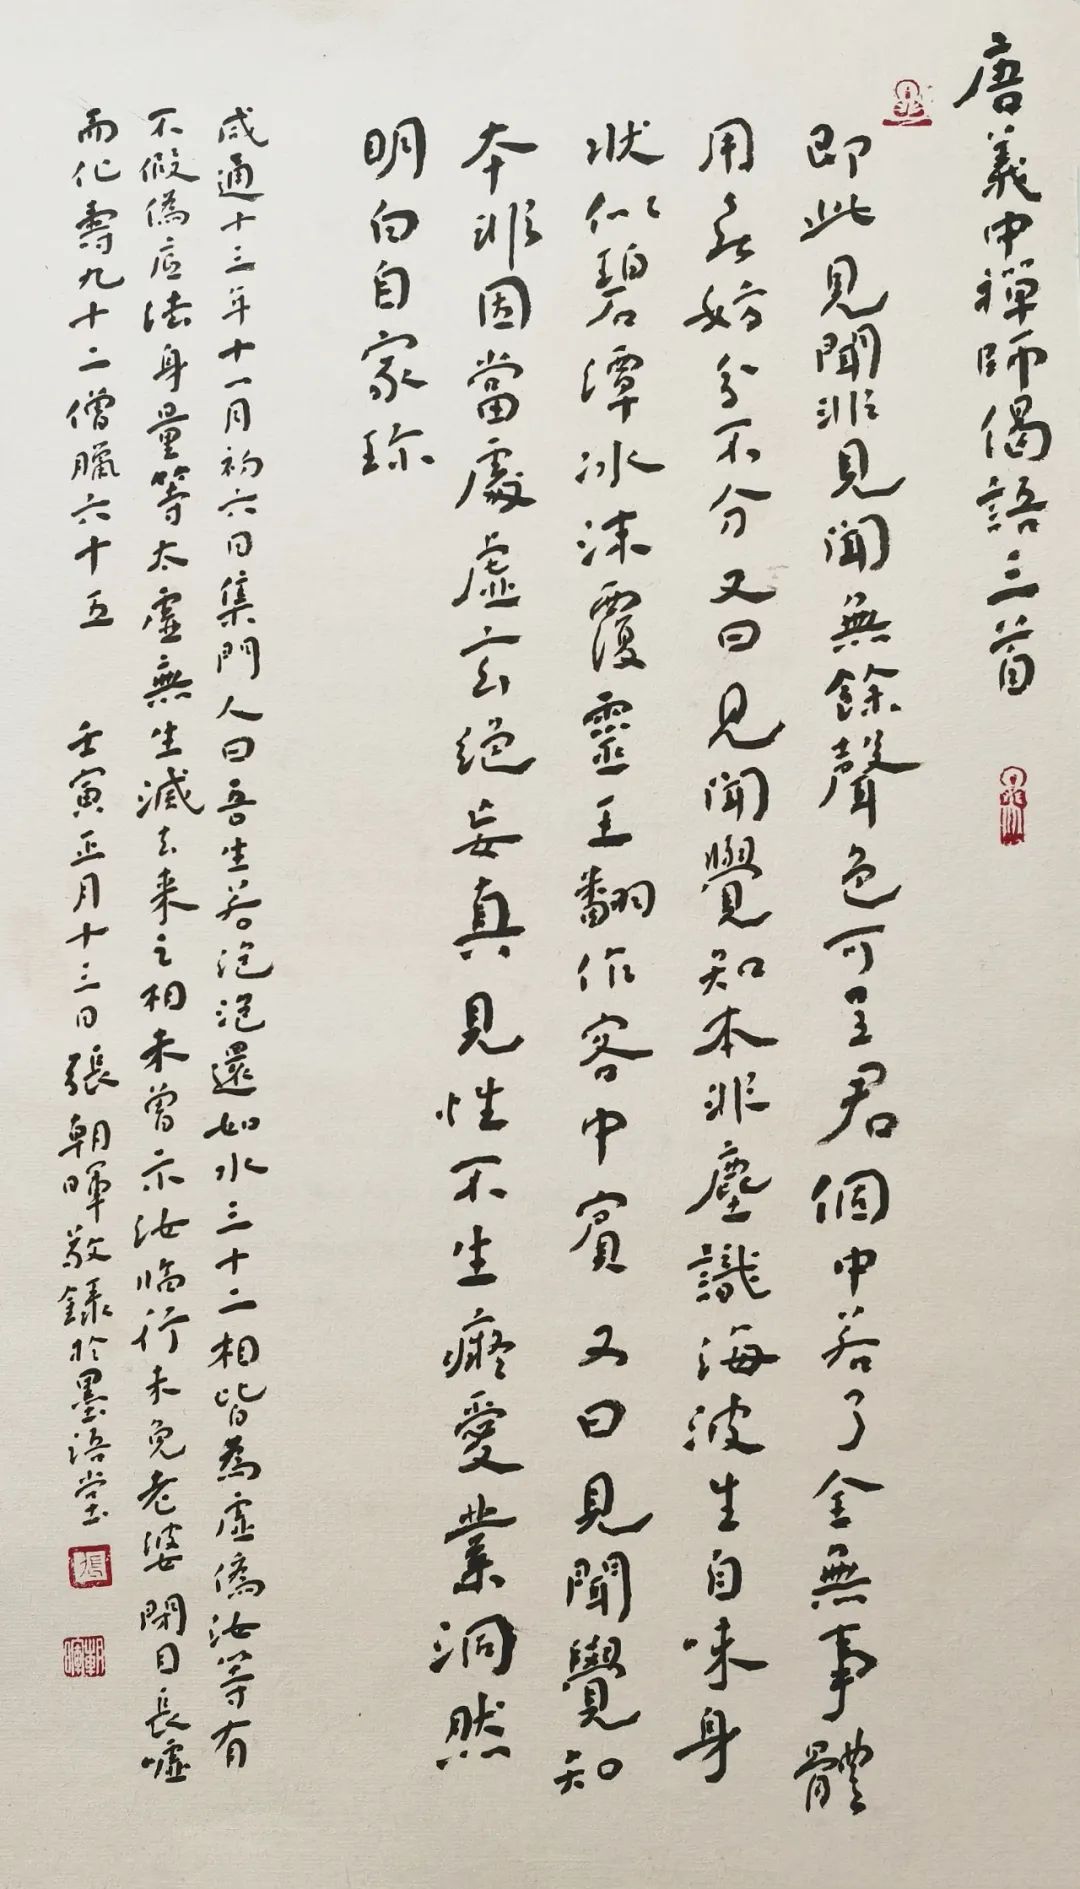 唐義中禪師偈語三首
即此見聞非見聞無餘聲色可呈君個中若了全無事體
用無妨分不分又曰見聞覺知本非塵識海波生自昧身
状似碧潭冰沫覆靈王翻作客中賓又曰見聞覺知
本非因當處虛玄絕妄真見性不生癡愛業洞然
明白自家珎
咸通十三年十一月初六日集門人曰吾生若泡泡還如水三十二相皆為虛僞汝等有
不假僞底法身量等太虛無生滅去来之相未曾示汝临行未免老婆閉目長噓
而化壽九十二僧臘六十五 壬寅正月十三日張朝暉敬録於墨語堂
張
朝暉